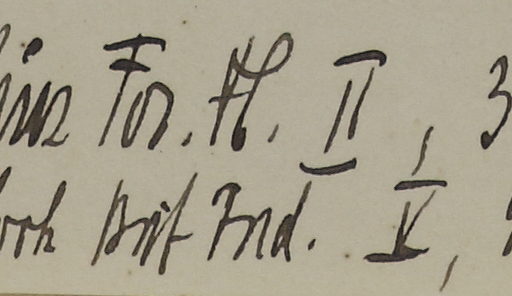 For. Fl. II, 3
Brit Ind. V,